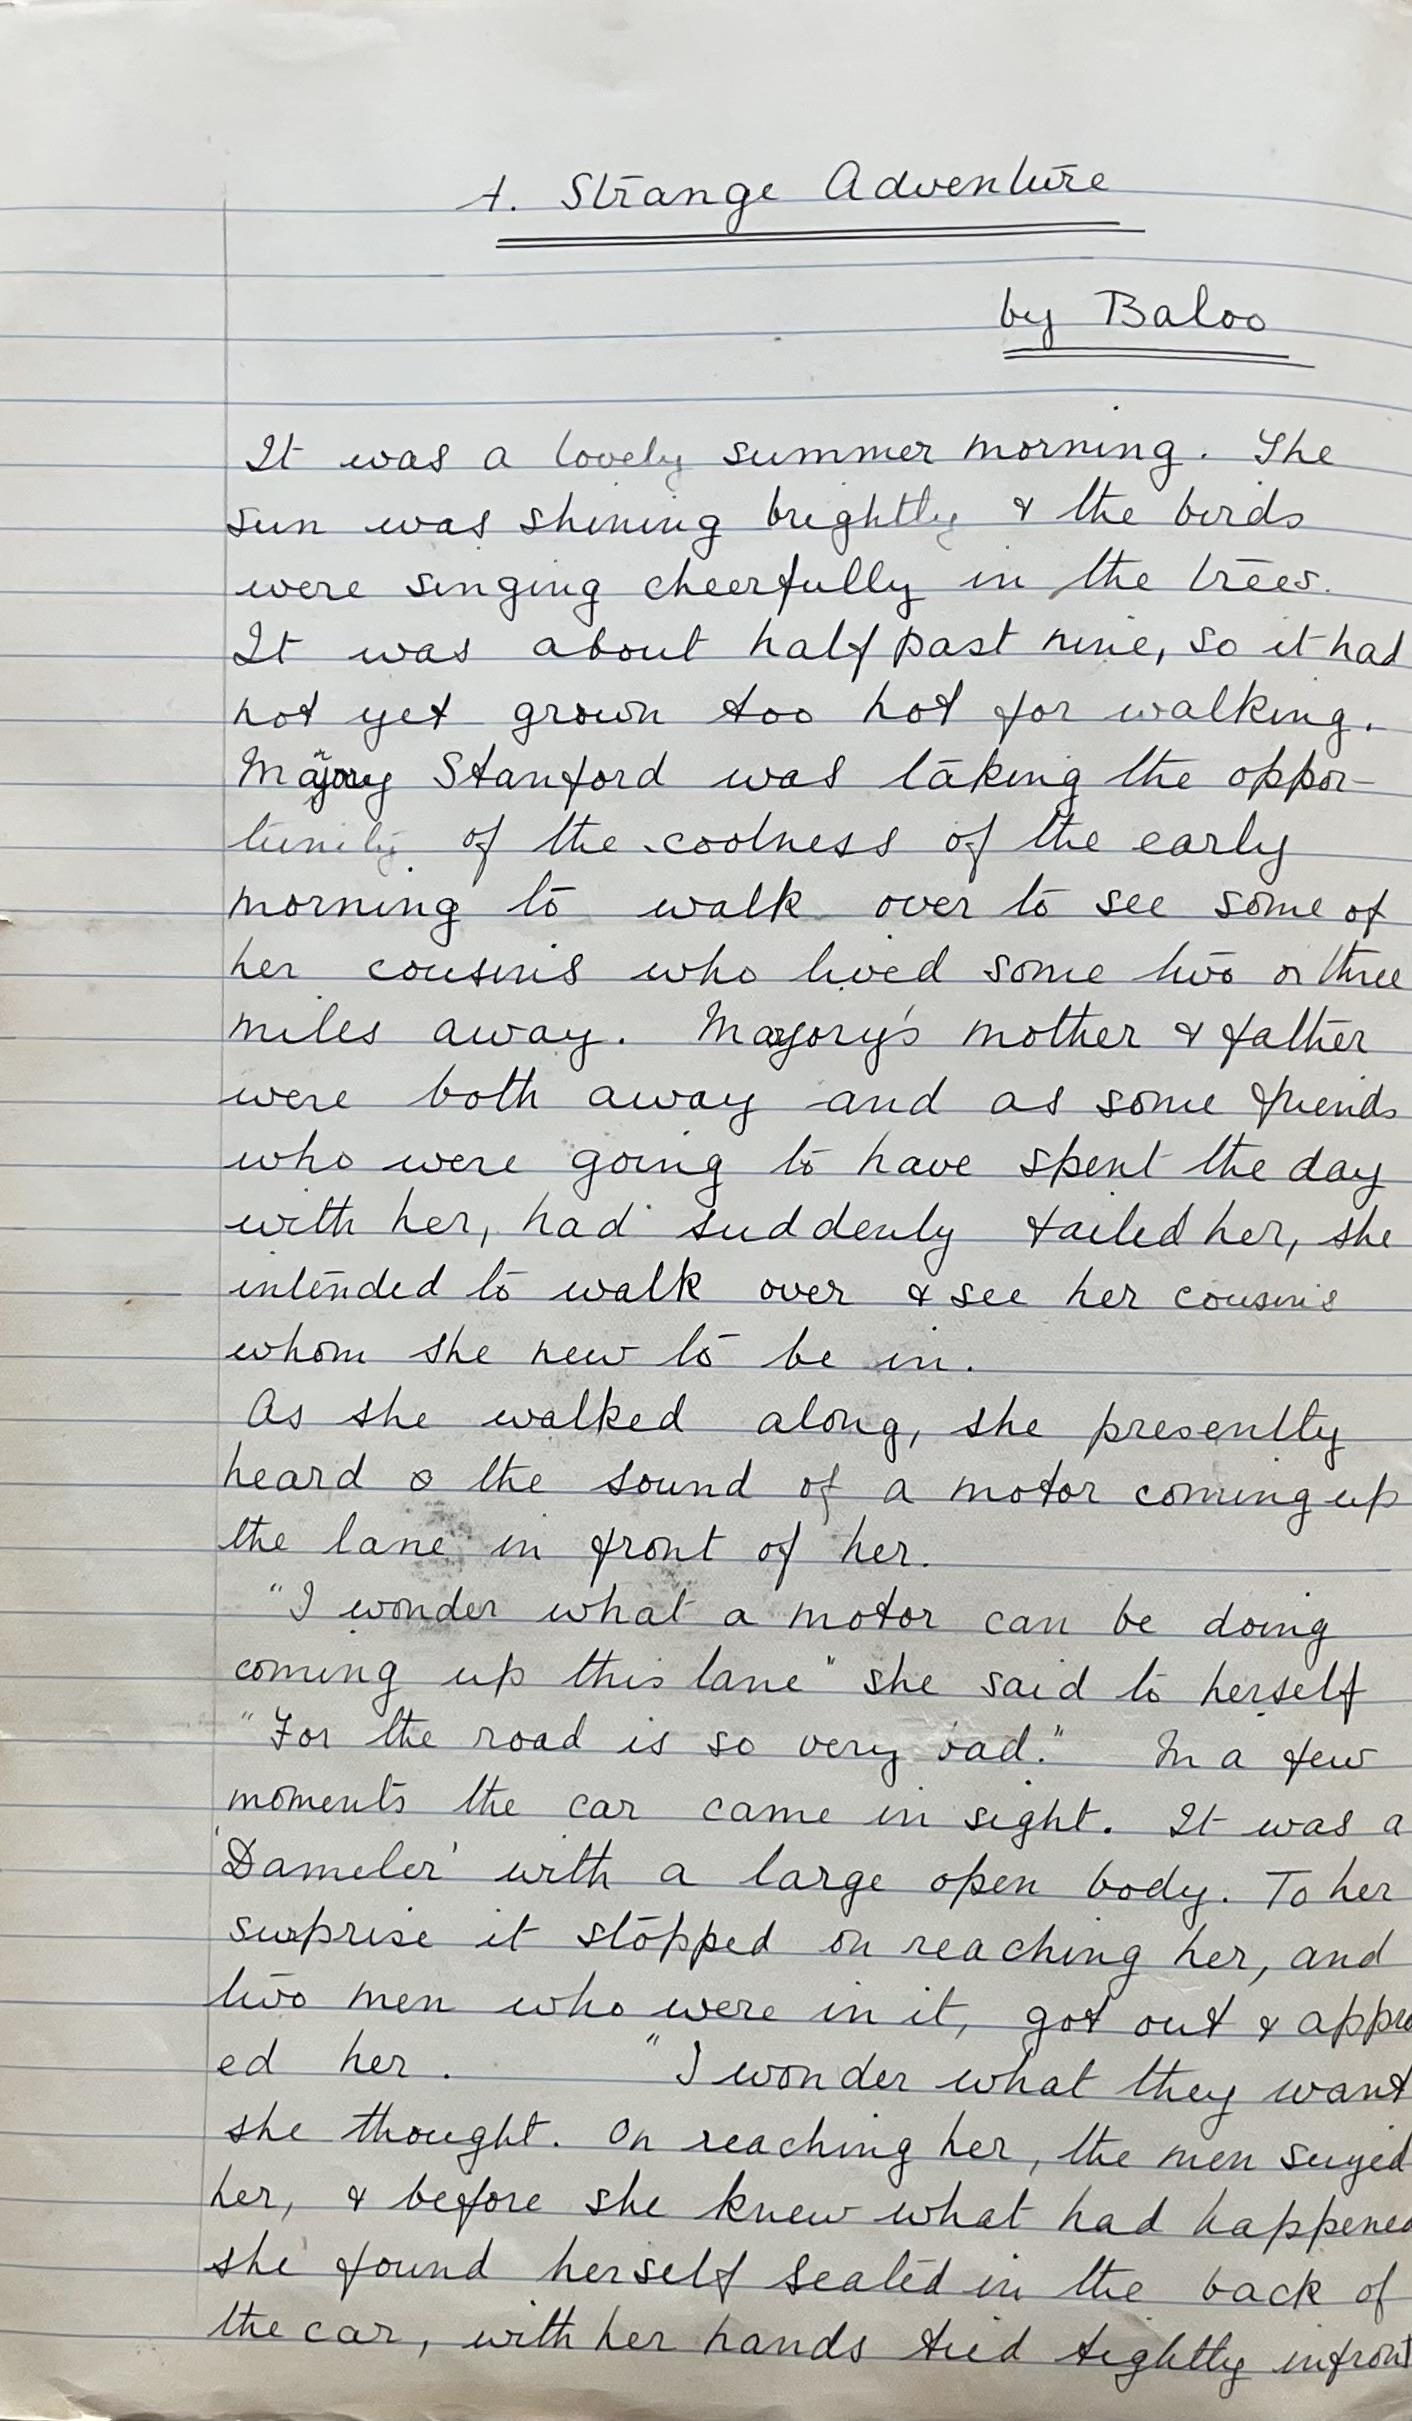 A. Strange Adventure
by Baloo
It was a lovely summer morning. The
sun was shining brightly & the birds
were singing cheerfully in the trees.
It was about half past nine, so it had
not yet grown too hot for walking.
Marjory Stanford was taking the oppor-
tunity of the coolness of the early
morning to walk over to see some of
her cousins who lived some two or three
miles away. Marjory's mother & father
were both away and as some friends
who were going to have spent the day
with her, had suddenly failed her, she
intended to walk over & see her cousins
whom she new to be in.
As she walked along, she presently
heard the sound of a motor coming up
the lane in front of her.
"I wonder what a motor can be doing
coming up this lane" she said to herself
"For the road is so very bad." In a few
moments the car came in sight. It was a
'Dameler' with a large open body. To her
surprise it stopped on reaching her, and
two men who were in it, got out & appro
ed her. "I wonder what they want
she thought. On reaching her, the men siezed
her, & before she knew what had happened
she found herself seated in the back of
the car, with her hands tied tightly infront